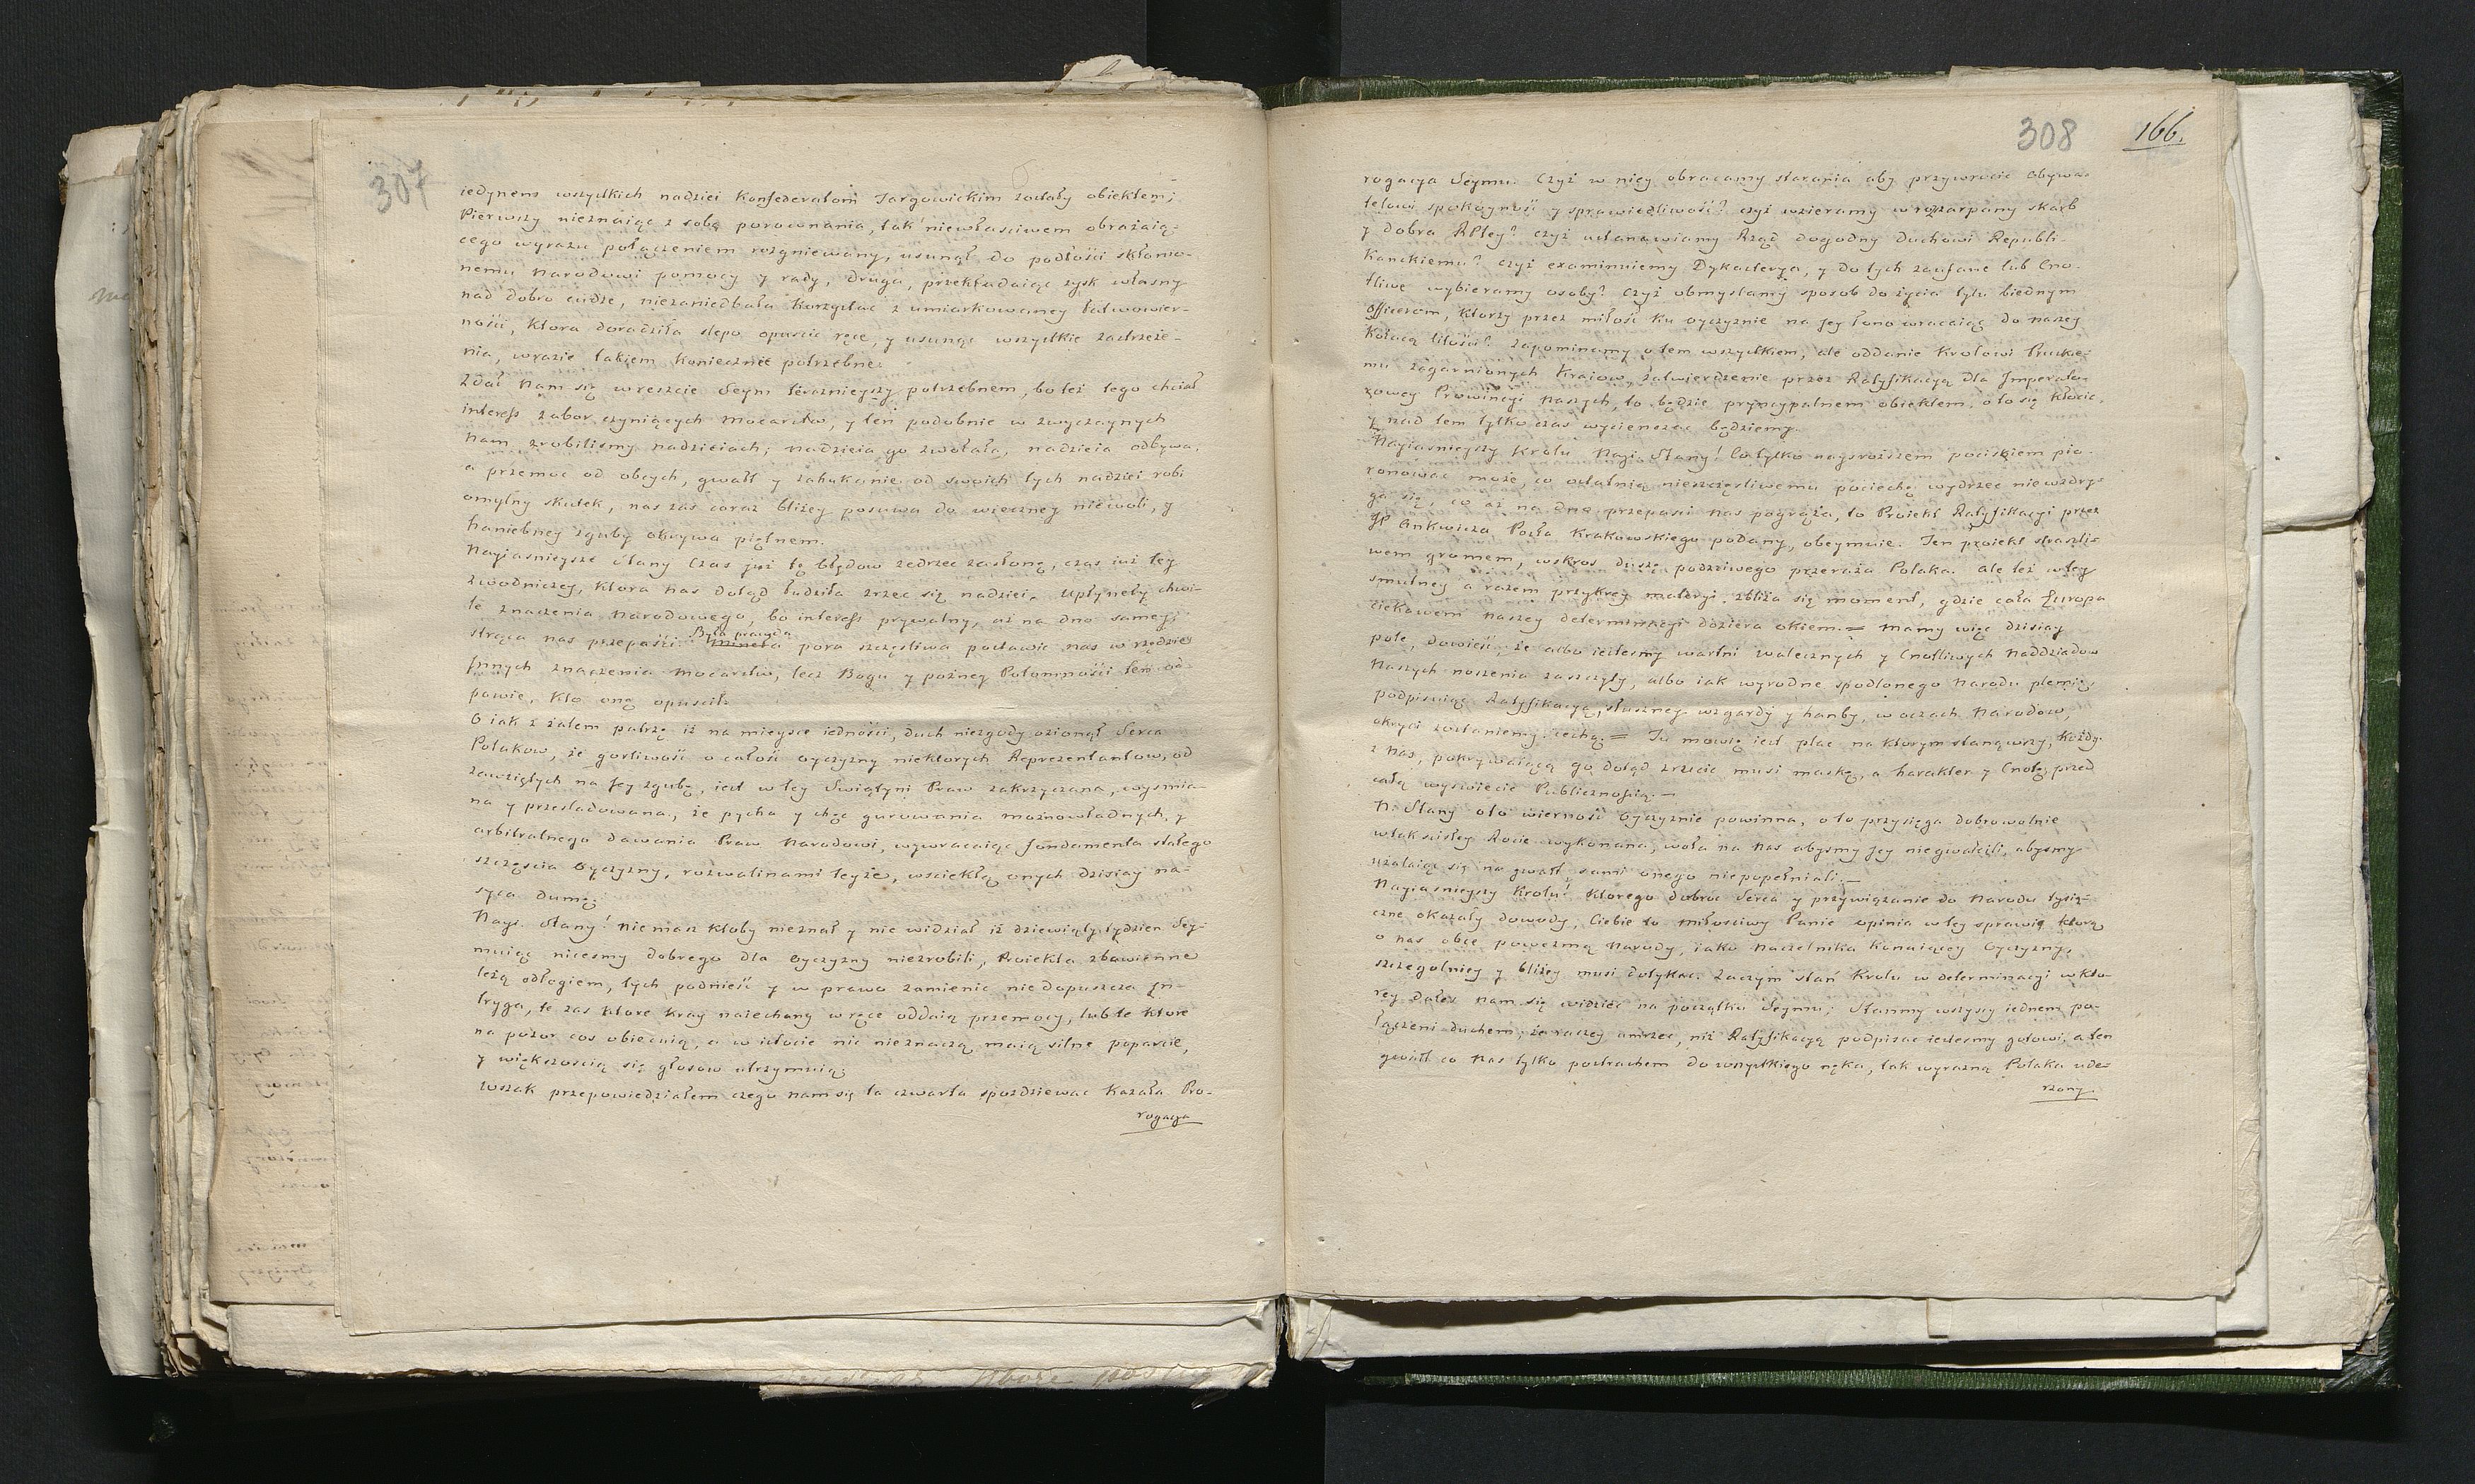 307
iedynem wszystkich nadziei Konfederatom Targowickim zostały obiektem;
Pierwszy nieznaiąc z sobą porownania, tak niewłasciwem obrażaią-
cego wyrazu połączeniem rozgniewany, usunął do podłości skłonio-
nemu Narodowi pomocy y rady, druga, przekładaiąc zysk własny
nad dobro cudze, niezaniedbała Korzystać z umiarkowaney łatwowier-
ności, Ktora doradziła slepo opuscic ręce, y usunąc wszystkie zastrzeże-
nia, wrazie takiem Koniecznie potrzebne.
Zdał Nam się wreszcie Seym terazniejszy potrzebnem, bo też tego chciał
interess zabor czyniących Mocarstw, y ten podobnie w zwyczaynych
Nam zrobilismy nadzieiach; Nadzieia go zwołała, nadzieia odbywa,
a przemoc od obcych, gwałt y zahukanie od swoich tych nadziei robi
omylny skutek, nas zas coraz bliżey posuwa do wieczney niewoli, y
haniebney zguby okrywa piętnem.
Nayiasnieysze Stany Czas już tę błędow zedrzec zasłonę, czas iuż tey
zwodniczey, Ktora nas dotąd łudziła zrzec się nadziei. Upłynęły chwi-
le znaczenia Narodowego, bo interess prywatny, aż na dno samey
strąca nas przepaści. Była prawda
Mineła pora szczęsliwa postawic nas w rzędzie
Innych znaczenia Mocarstw, lecz Bogu y pożney Potomności ten od
powie, Kto onę opuscił.
O iak z żalem patrzę iż na mieysce iedności, duch niezgody ozionął Serca
Polakow, że gorliwość o całość oyczyzny niektorych Reprezentantow, od
zawziętych na Jey zgubę, iest w tey Swiątyni Praw zakrzyczana, wysmia-
na y przesladowana, że pycha y chęc gurowania możnowładnych, y
arbitralnego dawania Praw Narodowi, wywracaiąc fondamenta stałego
szczęscia Oyczyzny, rozwalinami teyże, wsciekłą onych dzisiay na-
syca dumę.
Nayi. Stany! Nie masz Ktoby nieznał y nie widział iż dziewiąty tydzien Sey-
muiąc nicesmy dobrego dla Oyczyzny niezrobili, Proiekta zbawienne
leżą odłogiem, tych podnieść y w prawo zamienic niedopuszcza In-
tryga, te zas Ktore Kray naiechany w ręce oddaią przemocy, lub te Ktore
na pozor cos obiecuią, a w istocie nic nieznaczą maią silne poparcie,
y większoscią się głosow utrzymuią;
Wszak przepowiedziałem czego nam się ta czwarta spozdziewac Kazała Pro-
rogacya
308
166.
rogacya Seymu. Czyż w niey obracamy starania aby przywrocic Obywa-
telowi spokoyność y sprawiedliwość? czyż wzieramy w rozszarpany skarb
y dobra RPltey? czyż ustanawiamy Rząd dogodny duchowi Republi-
Kanckiemu? czyż examinuiemy Dykasterya, y do tych zaufane lub Cno-
tliwe wybieramy osoby? czyż obmyslamy sposob do życia tylu biednym
Officerom, Ktorzy przez miłość Ku oyczyznie na Jey łono wracaiąc do naszey
Kołacą litości? zapominamy o tem wszystkiem, ale oddanie Krolowi Pruskie-
mu zagarnionych Kraiow, zatwierdzenie przez Ratyfikacyą dla Imperato-
rowey Prowincyi Naszych, to będzie pryncypalnem obiektem, oto się kłocic,
y nad tem tylko czas wycienczac będziemy.
Nayiasnieyszy Krolu Nayi. Stany! Co tylko naysroższem pociskiem pio-
ronowac może, co ostatnią nieszczęsliwemu pociechę wydrzec niewzdry-
ga się, co aż na dno przepasci nas pogrąża, to Proiekt Ratyfikacyi przez
JP Ankwicza Posła Krakowskiego podany, obeymuie. Ten proiekt straszli-
wem gromem, wskros duszę poczciwego przeraża Polaka. Ale też w tey
smutney a razem przykrey materyi zbliża się moment, gdzie cała Europa
ciekawem naszey determinacyi doziera okiem. = Mamy więc dzisiay
pole, dowieść, że albo iestesmy wartni walecznych y Cnotliwych Naddziadow
Naszych noszenia zaszczyty, albo iak wyrodne spodlonego Narodu plemię,
podpisuiąc Ratyfikacyą, słuszney wzgardy y hanby, w oczach Narodow,
okryci zostaniemy cechą. = Tu mowię iest plac na Ktorym stanąwszy, Każdy
z nas, pokrywaiącą go dotąd zrzucic musi maskę, a harakter y Cnotę przed
całą wyswiecic Publicznoscią. —
N. Stany oto wierność Oyczyznie powinna, oto przysięga dobrowolnie
w tak scisłey Rocie wykonana, woła na Nas abysmy Jey niegwałcili, abysmy
użalaiąc się na gwałt, sami onego niepopełniali. —
Nayiasnieyszy Krolu! Ktorego dobroc Serca y przywiązanie do Narodu tysią-
czne okazały dowody, Ciebie to Miłosciwy Panie opinia w tey sprawie Ktorą
o nas obce powezmą Narody, iako Naczelnika Konaiącey Oyczyzny,
szczegolniey y bliżey musi dotykac. Zaczym stań Krolu w determinacyi w Kto-
rey dałes Nam się widziec na początku Seymu; Stanmy wszyscy iednem po-
łączeni duchem, że raczey umrzec, niż Ratyfikacyą podpisac iestesmy gotowi, a ten
gwałt co Nas tylko postrachem do wszystkiego nęka, tak wyrazną Polaka ude-
rzony